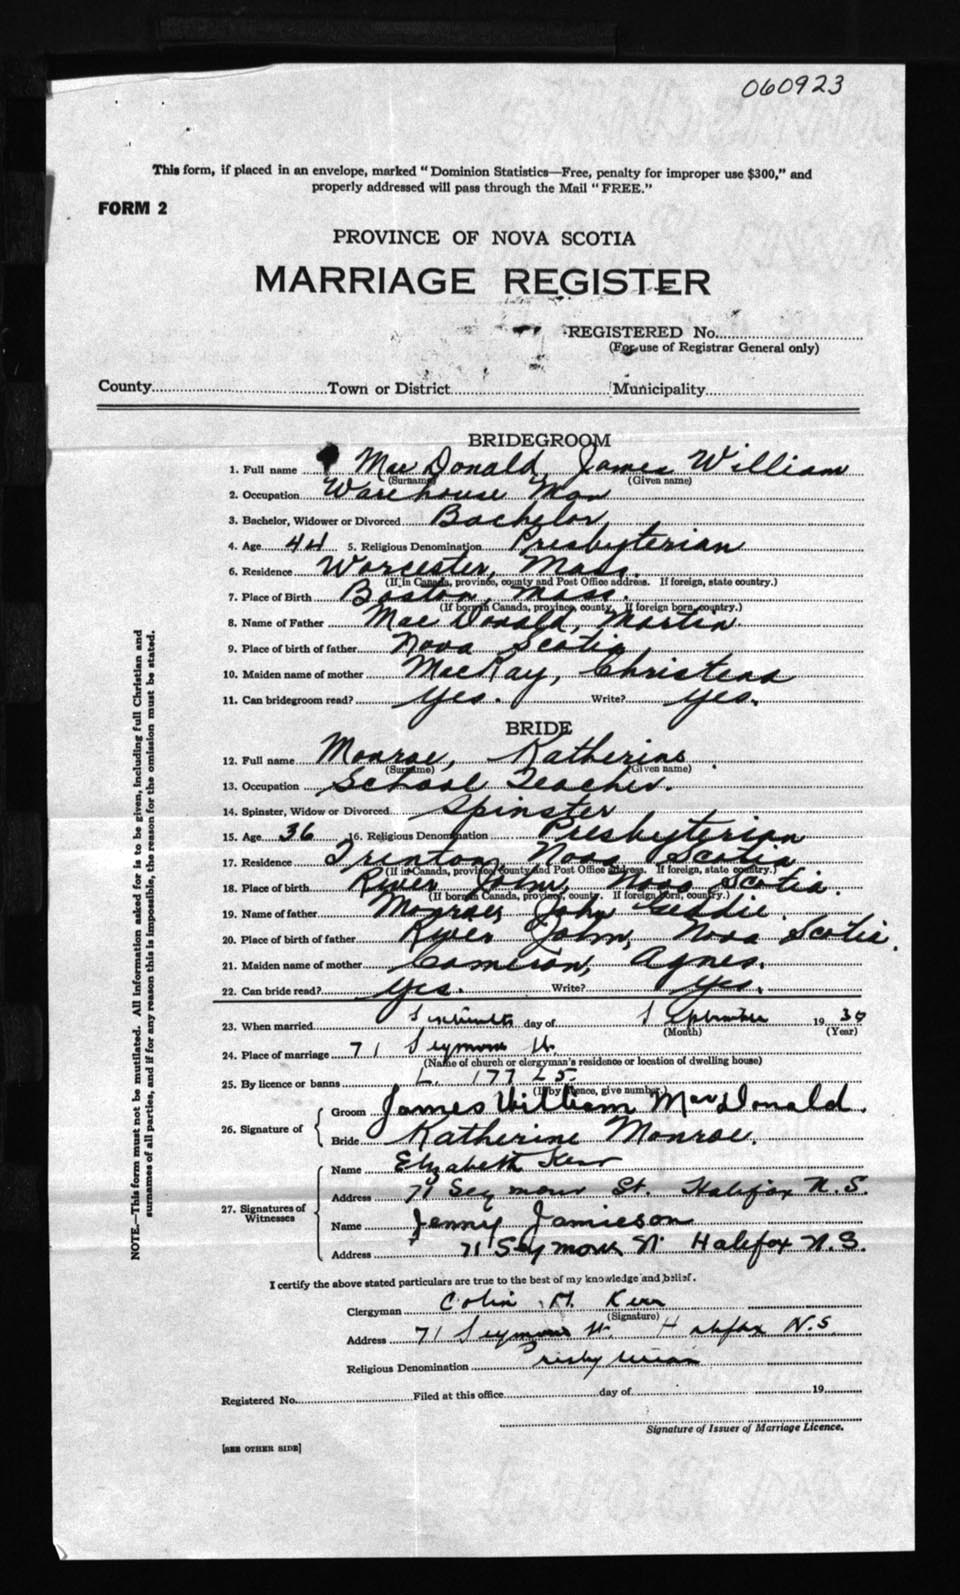 060923
This form, if placed in an envelope, marked "Dominion Statistics—Free, penalty for improper use $300," and
properly addressed will pass through the Mail "FREE."
FORM 2
PROVINCE OF NOVA SCOTIA
MARRIAGE REGISTER
REGISTERED No.
(For use of Registrar General only)
County Town or District Municipality
BRIDEGROOM
1. Full name MacDonald, James William
(Surname) (Given name)
2. Occupation Warehouse Man
3. Bachelor, Widower or Divorced Bachelor
4. Age 44 5. Religious Denomination Presbyterian
6. Residence Worcester, Mass.
(If in Canada, province, county and Post Office address. If foreign, state country.)
7. Place of Birth Boston, Mass.
(If born in Canada, province, county. If foreign born, country.)
8. Name of Father MacDonald, Martin
9. Place of birth of father Nova Scotia
10. Maiden name of mother MacKay, Christena
11. Can bridegroom read? Yes. Write? Yes.
BRIDE
12. Full name Monroe, Katherine
(Surname) (Given name)
13. Occupation School Teacher.
14. Spinster, Widow or Divorced Spinster
15. Age 36 16. Religious Denomination Presbyterian
17. Residence Trenton, Nova Scotia
(If in Canada, province, county and Post Office address. If foreign, state country.)
18. Place of birth River John, Nova Scotia.
(If born in Canada, province, county. If foreign born, country.)
19. Name of father Monroe, John Geddie.
20. Place of birth of father River John, Nova Scotia.
21. Maiden name of mother Cameron, Agnes.
22. Can bride read? Yes. Write? Yes.
23. When married day of September 1930
(Month) (Year)
24. Place of marriage 71 Seymour St.
(Name of church or clergyman's residence or location of dwelling house)
25. By licence or banns L. 17725
(If by licence, give number.)
26. Signature of
Groom James William MacDonald.
Bride Katherine Monroe.
27. Signatures of Witnesses
Name Elizabeth Kerr
Address 71 Seymour St. Halifax N.S.
Name Jenny Jamieson
Address 71 Seymour St Halifax N.S.
I certify the above stated particulars are true to the best of my knowledge and belief.
Clergyman Colin M. Kerr
(Signature)
Address 71 Seymour St. Halifax N.S.
Religious Denomination Presbyterian
Registered No. Filed at this office day of 19
Signature of Issuer of Marriage Licence.
[SEE OTHER SIDE]
NOTE.—This form must not be mutilated. All information asked for is to be given, including full Christian and
surnames of all parties, and if for any reason this is impossible, the reason for the omission must be stated.